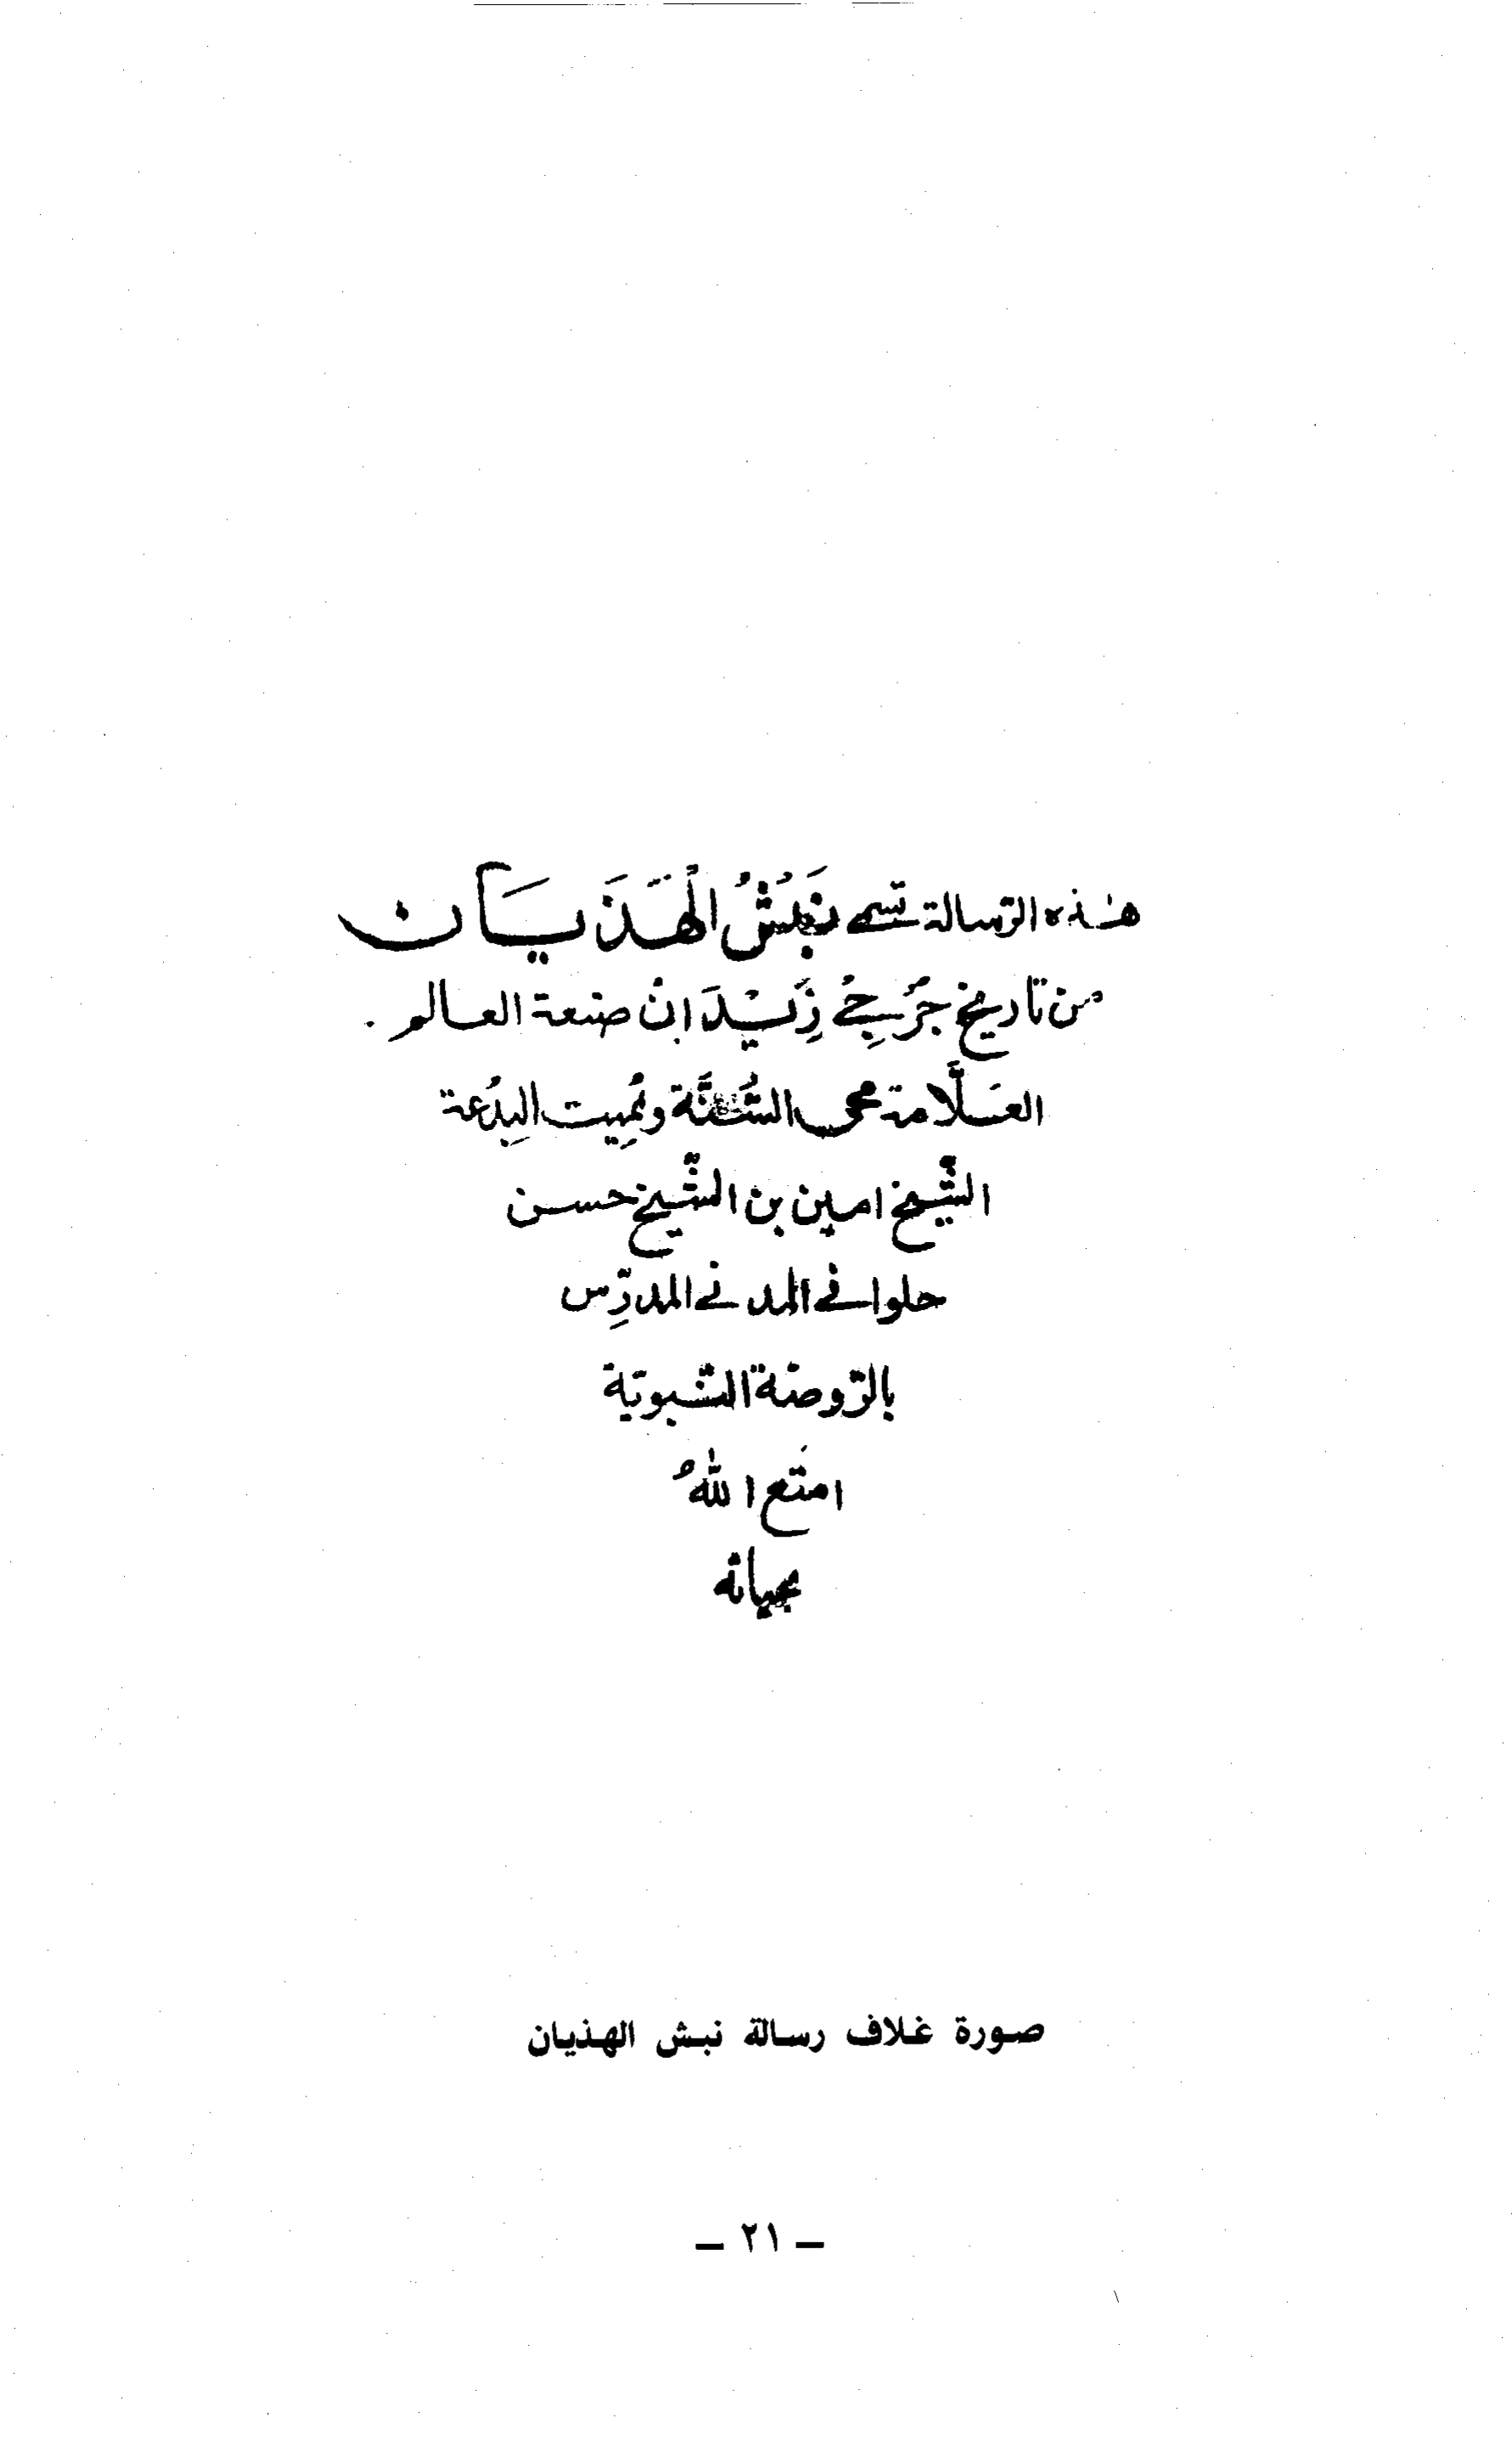 هذه الرّسالة تسمى نَبْشُ الْهَذَيَان
من تاريخ جُرْجِي زَيْدَان صنعة العالم.
العَلّامة محيى السُّنَّة ومُمِيت البِدْعة
الشّيخ امين بن الشّيخ حسن
حلوانى المدنى المدرِّس
بالرّوضة النّبويّة
امتَع اللهُ
بحياته
صورة غلاف رسالة نبش الهذيان
– ٢١ –